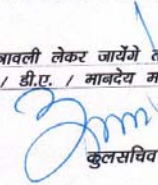 त्रावली लेकर जायेंगे त
/ डी.ए. / मानदेय म
कुलसचिव